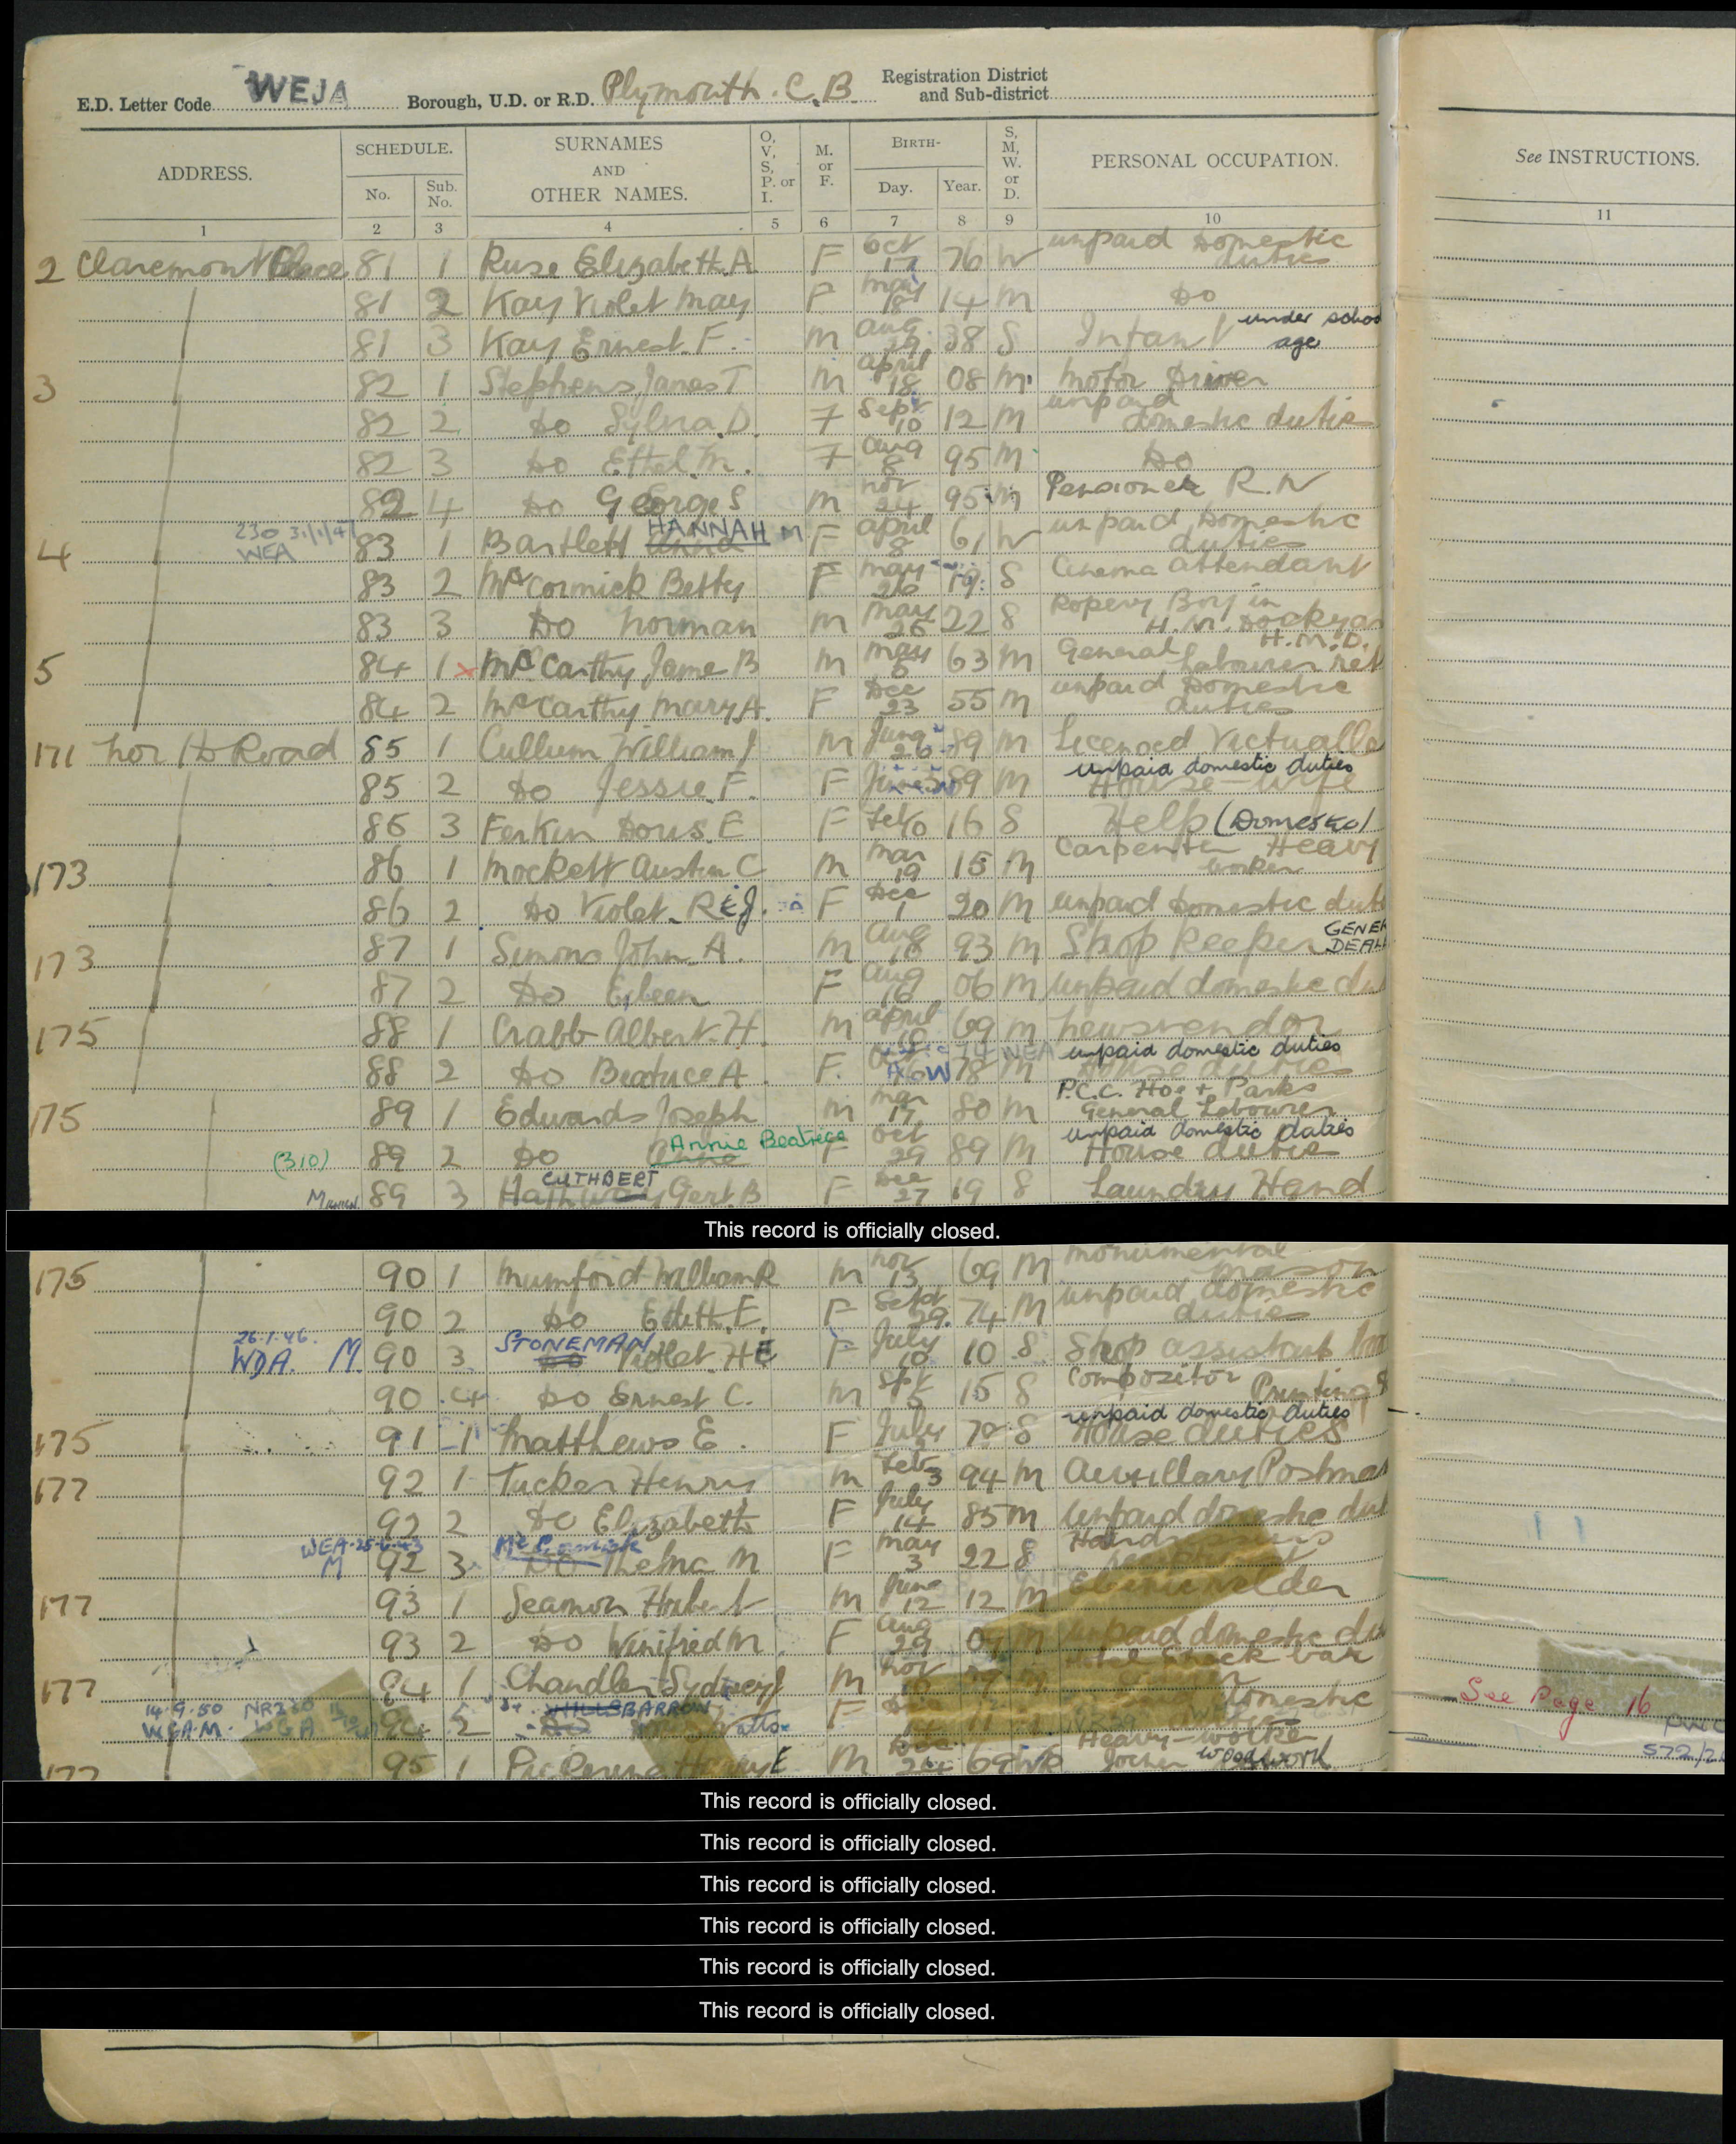 E.D. Letter Code WEJA Borough, U.D. or R.D. Plymouth. C.B. Registration District and Sub-district
ADDRESS. SCHEDULE. No. Sub. No. SURNAMES AND OTHER NAMES. O, V, S, P. or I. M. or F. BIRTH- Day. Year. S, M, W. or D. PERSONAL OCCUPATION. See INSTRUCTIONS.
1 2 3 4 5 6 7 8 9 10 11
2 Claremont Place 81 1 Ruse Elizabeth A F Oct 17 76 W unpaid Domestic duties
81 2 Kay Violet May F May 18 14 M Do
81 3 Kay Ernest F. M Aug 38 S Infant under school age
3 82 1 Stephens James T M April 18 08 M Motor Driver
82 2 Do Sylvia D. F Sept 10 12 M unpaid domestic duties
82 3 Do Ethel M. F Aug 8 95 M Do
82 4 Do George S M Nov 24 95 M Pensioner R.N
230 31/1/47 WEA
4 83 1 Bartlett HANNAH M F April 8 61 W unpaid Domestic duties
83 2 McCormick Betty F May 26 19 S Cinema attendant
83 3 Do Norman M May 26 22 S Ropery Boy in H.M. Dockyar
5 84 1 McCarthy Jame B M May 6 63 M General Labourer H.M.D. ret
84 2 McCarthy Mary A. F Dec 23 55 M unpaid Domestic duties
171 North Road 85 1 Cullum William J M 26 89 M Licenced Victualle
85 2 Do Jessie F. F June 89 M unpaid domestic duties House wife
85 3 Ferkin Doris E F Feb 10 16 S Help (Domestic)
173 86 1 Mockett Austin C M Mar 19 15 M Carpenter Heavy worker
86 2 Do Violet R E J. F Dec 1 20 M unpaid Domestic duti
173 87 1 Simons John A. M Aug 18 93 M Shop Keeper GENER DEAL
87 2 Do Eileen F Aug 06 M unpaid domestic du
175 88 1 Crabb Albert H. M April 69 M Newsvendor
88 2 Do Beatrice A. F. Oct 78 M unpaid domestic duties House duties
175 89 1 Edwards Joseph M Mar 17 80 M P.C.C. Hoe + Parks General Labourer
(310) 89 2 Do Annie Beatrice F Oct 29 89 M unpaid domestic duties House duties
89 3 CUTHBERT Gert. B F Dec 27 19 S Laundry Hand
This record is officially closed.
175 90 1 Mumford William R M Nov 13 69 M Monumental mason
90 2 Do Edith E. F Sept 29. 74 M unpaid domestic duties
26.1.46. WDA. M. 90 3 STONEMAN Do Violet H E F July 10 10 S Shop assistant
90 4 Do Ernest C. M Sept 5 15 S Compositor Printing
175 91 1 Matthews E. F July 70 S unpaid domestic duties House duties
177 92 1 Tucker Henry M Feb 3 94 M Auxillary Postman
92 2 Do Elizabeth F July 14 85 M unpaid domestic dut
M 92 3 McCormick Do Thelma M F May 3 22 S
177 93 1 Seamon Hubert M June 12 12 M Electric welder
93 2 Do Winifred M. F Aug 29 M unpaid domestic du
177 94 1 Chandler Sydney J M Nov Snack bar
14.9.50 NR230 W.E.A.M. WEA 94 2 HILLS BARRON Do F domestic
See Page 16
95 1 Henry E M Dec 24 69 Heavy-worker Joiner woodwork
572/2
This record is officially closed.
This record is officially closed.
This record is officially closed.
This record is officially closed.
This record is officially closed.
This record is officially closed.